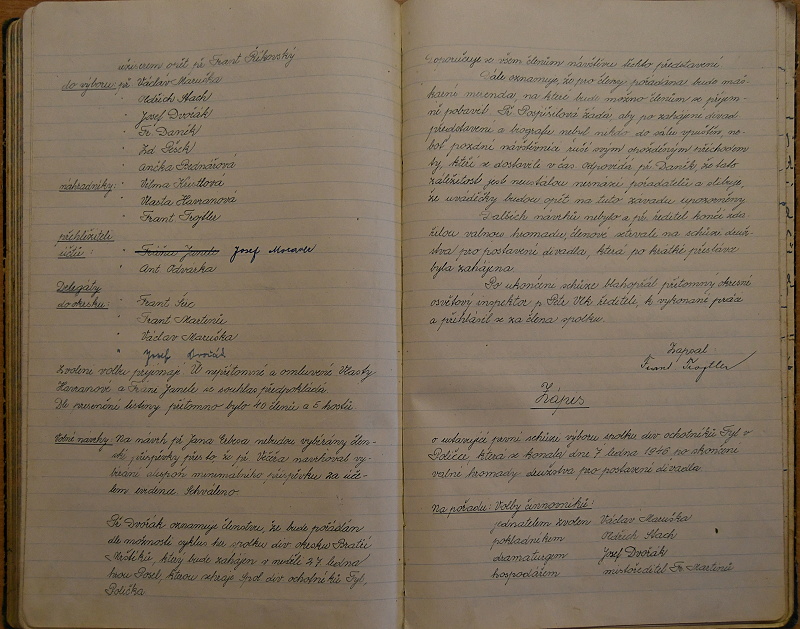 režisérem opět př. Frant Řikovský
do výboru: př. Václav Maruška
Oldřich Stach
Josef Dvořák
Fr. Daněk
Zd. Pešek
Anička Bednářová
náhradníky: Vilma Kustlova
Vlasta Havranová
Frant Trojtler
přehlížiteli
účtů: Josef
Ant Odvárka
Delegáty
do okrsku: Frant Šec
Frant Martinů
Václav Maruška
Josef Dvořák
Zvolení volbu přijímají. U nepřítomné a omluvené Vlasty
Havranové a Fráni Janele se souhlas předpokládá.
Dle presenční listiny přítomno bylo 40 členů a 5 hostů.
Volné návrhy: Na návrh př. Jana Erbesa nebudou vybírány člen-
ské příspěvky přes to že př. Večeřa navrhoval vy-
bírání alespoň minimálního příspěvku za úče-
lem evidence. Schváleno.
Př. Dvořák oznamuje členstvu, že bude pořádán
dle možnosti cyklus her spolků div. okrsku Bratří
Mrštíků, který bude zahájen v neděli 27 ledna
hrou Posel, kterou sehraje spol. div. ochotníků Tyl,
Polička
Doporučuje se všem členům návštěva těchto představení.
Dále oznamuje, že pro členy pořádána bude maš-
karní merenda, na které bude možno členům se příjem-
ně pobaviti. Př. Pospíšilová žádá, aby po zahájení divad.
představení a biografu nebyl nikdo do sálu vpuštěn, ne-
boť pozdní návštěvníci ruší svým opožděným příchodem
ty, kteří se dostavili včas. Odpovídá př. Daněk, že tato
záležitost jest neustálou nesnází pořadatelů a slibuje,
že uváděčky budou opět na tuto závadu upozorněny.
Dalších návrhů nebylo a př. ředitel končí zda-
řilou valnou hromadu, členové setrvali na schůzi druž-
stva pro postavení divadla, která po krátké přestávce
byla zahájena.
Po ukončení schůze blahopřál přítomný okresní
osvětový inspektor p. Petr Vlk řediteli, k vykonané práci
a přihlásil se za člena spolku.
Zapsal
Frant Trojtler
Zápis
o ustavující první schůzi výboru spolku div. ochotníků Tyl v
Poličce která se konala dne 7 ledna 1946 po skončení
valné hromady družstva pro postavení divadla.
Na pořadu: Volby činovníků:
jednatelem zvolen Václav Maruška
pokladníkem Oldřich Stach
dramaturgem Josef Dvořák
hospodářem místoředitel Fr. Martinů